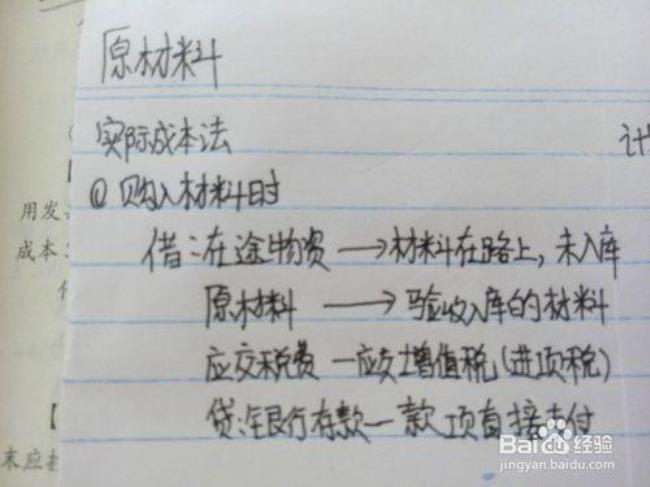 原材料
实际成本法
计
① 购入材料时
用发
成本:
借:在途物资 → 材料在路上,未入库
原材料 → 验收入库的材料
应交税费 — 应交增值税(进项税)
贷:银行存款 — 款项直接支付
【
末应
Baidu经验
jingyan.baidu.com